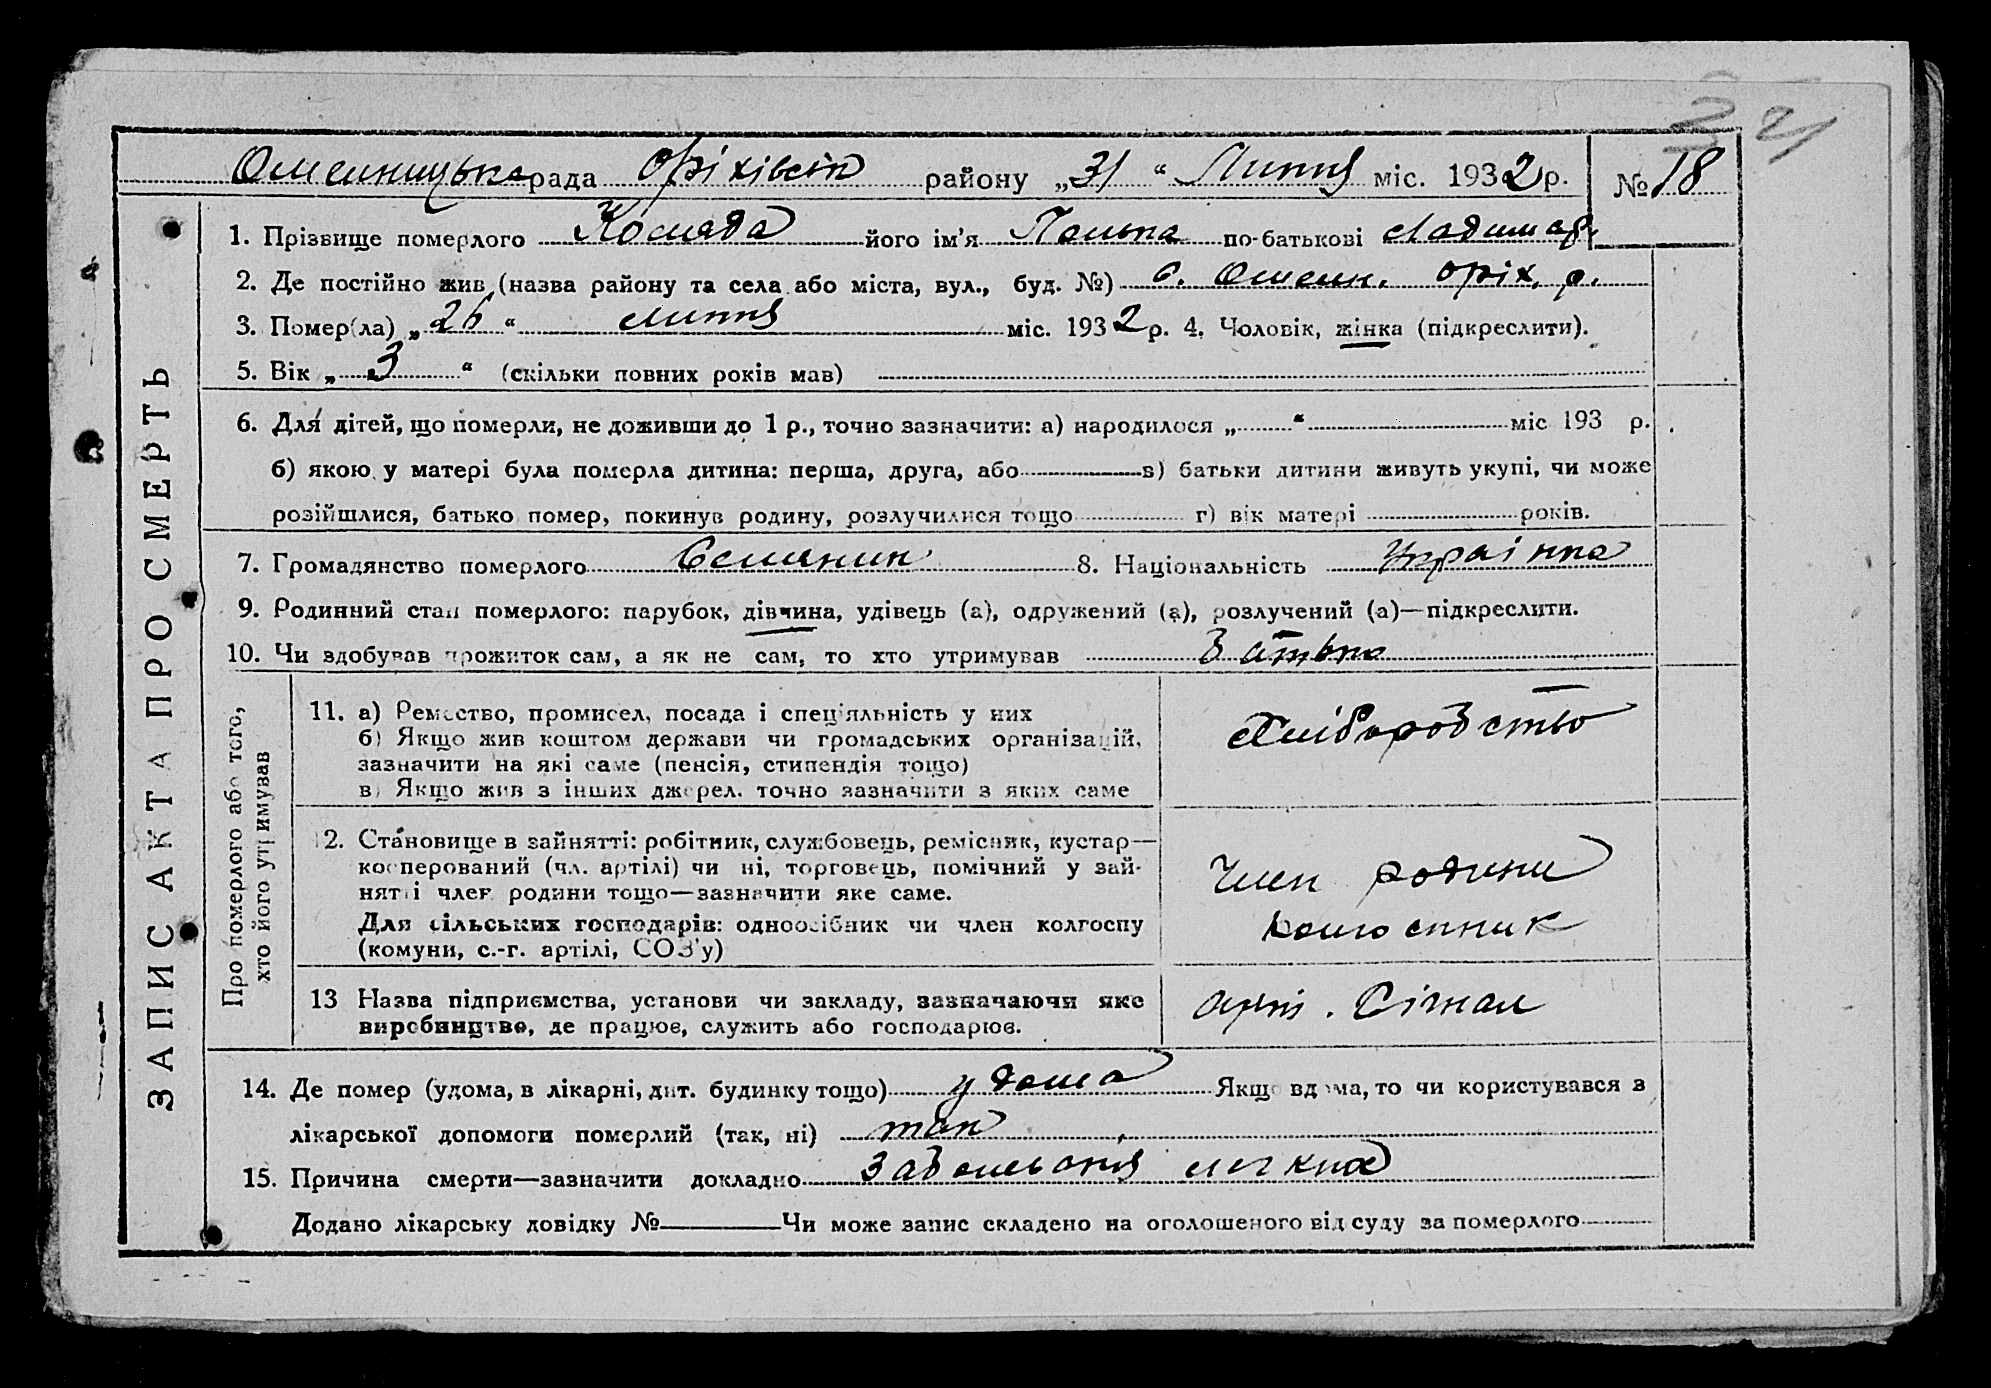 21
Омельницька рада Оріхівськ району „31“ Липня міс. 1932 р. № 18
1. Прізвище померлого Коляда його ім'я Полька по-батькові
2. Де постійно жив (назва району та села або міста, вул., буд. №) с. Омельн. Оріх. р.
3. Помер(ла) „26“ липня міс. 1932 р. 4. Чоловік, жінка (підкреслити).
5. Вік „3“ (скільки повних років мав)
6. Для дітей, що померли, не доживши до 1 р., точно зазначити: а) народилося „ “ міс 193 р.
б) якою у матері була померла дитина: перша, друга, або в) батьки дитини живуть укупі, чи може
розійшлися, батько помер, покинув родину, розлучилися тощо г) вік матері років.
7. Громадянство померлого Селянин 8. Національність Українка
9. Родинний стан померлого: парубок, дівчина, удівець (а), одружений (а), розлучений (а)—підкреслити.
10. Чи здобував прожиток сам, а як не сам, то хто утримував Батько
ЗАПИС АКТА ПРО СМЕРТЬ
Про померлого або того, хто його утримував
11. а) Ремество, промисел, посада і спец'яльність у них
б) Якщо жив коштом держави чи громадських організацій,
зазначити на які саме (пенсія, стипендія тощо)
в) Якщо жив з інших джерел. точно зазначити з яких саме
Хліборобство
12. Становище в зайнятті: робітник, службовець, ремісник, кустар—
кооперований (чл. артілі) чи ні, торговець, помічний у зай-
нятті член родини тощо—зазначити яке саме.
Для сільських господарів: одноосібник чи член колгоспу
(комуни, с.-г. артілі, СОЗ'у)
Член родини
колгоспник
13 Назва підприємства, установи чи закладу, зазначаючи яке
виробництво, де працює, служить або господарює.
арт. Сігнал
14. Де помер (удома, в лікарні, дит. будинку тощо) у дома Якщо вдома, то чи користувався з
лікарської допомоги померлий (так, ні) так
15. Причина смерти—зазначити докладно Заболівання легких
Додано лікарську довідку № Чи може запис складено на оголошеного від суду за померлого